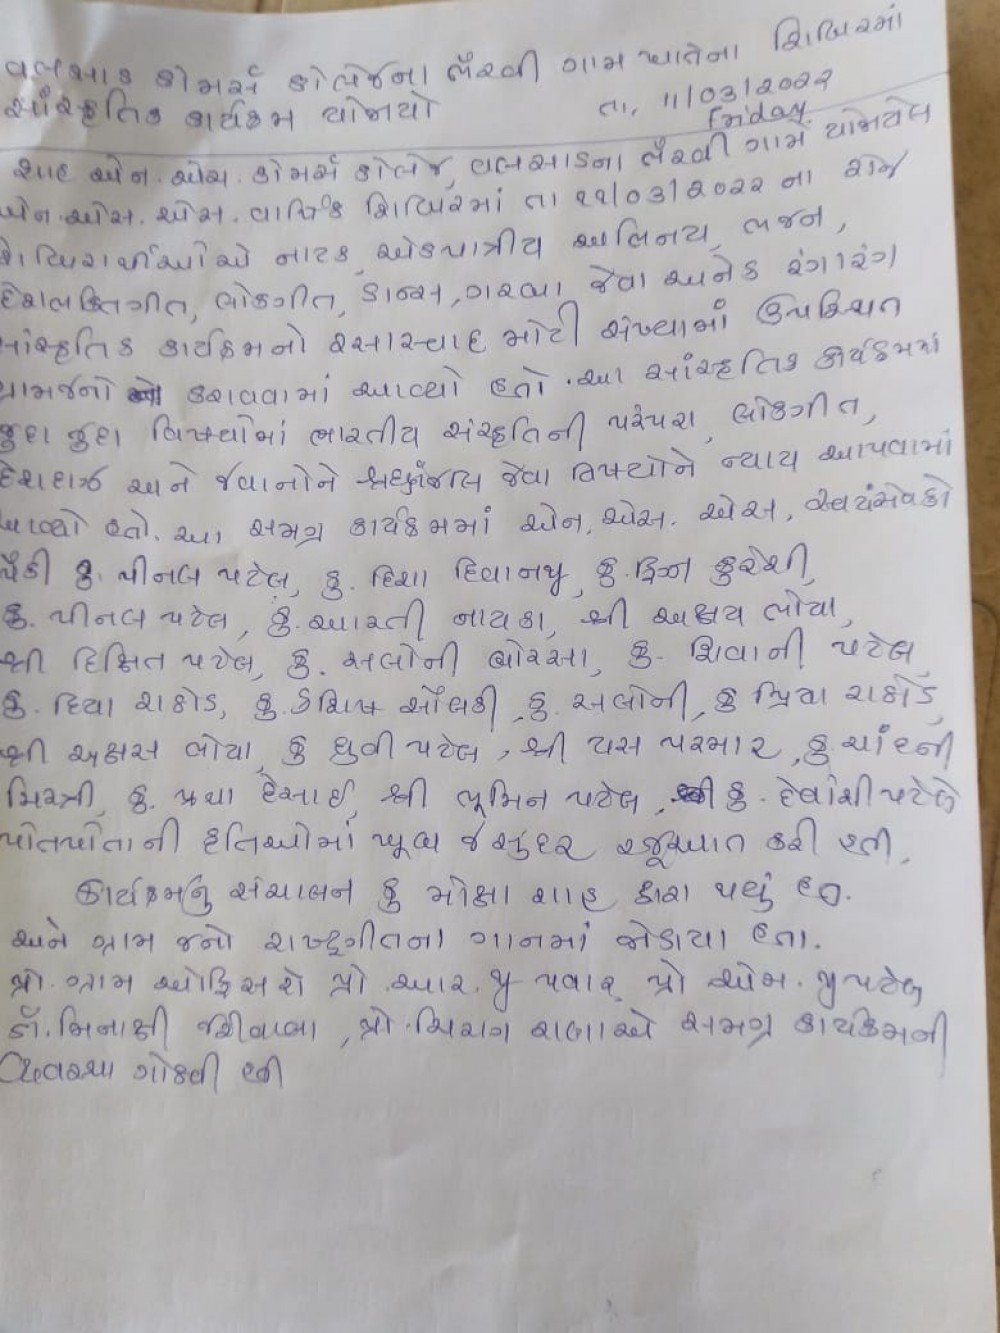 વલસાડ કોમર્સ કોલેજના ભૈરવી ગામ ખાતેના શિબિરમાં
સાંસ્કૃતિક કાર્યક્રમ યોજાયો
તા. 11/03/2022
Friday
શાહ એન. એચ. કોમર્સ કોલેજ, વલસાડના ભૈરવી ગામે યોજાયેલ
એન.એસ. એસ. વાર્ષિક શિબિરમાં તા ૧૧/૦૩/૨૦૨૨ ના રોજ
શિબિરાર્થીઓએ નાટક, એકપાત્રીય અભિનય, ભજન,
દેશભક્તિગીત, લોકગીત, ડાન્સ, ગરબા જેવા અનેક રંગારંગ
સાંસ્કૃતિક કાર્યક્રમનો રસાસ્વાદ મોટી સંખ્યામાં ઉપસ્થિત
ગ્રામજનો કરાવવામાં આવ્યો હતો. આ સાંસ્કૃતિક કાર્યક્રમમાં
જુદા જુદા વિષયોમાં ભારતીય સંસ્કૃતિની પરંપરા, લોકગીત,
દેશદાઝ અને જવાનોને શ્રદ્ધાંજલિ જેવા વિષયોને ન્યાય આપવામાં
આવ્યો હતો. આ સમગ્ર કાર્યક્રમમાં એન. એસ. એસ. સ્વયંસેવકો
પૈકી કુ. પીનલ પટેલ, કુ. દિશા દિવાનજી, કુ. કુરેશી,
કુ. પીનલ પટેલ, કુ. આરતી નાયકા, શ્રી અક્ષય ભોયા,
શ્રી દિક્ષિત પટેલ, કુ. સલોની બોરસા, કુ. શિવાની પટેલ,
કુ. દિવ્યા રાઠોડ, કુ. કશિષ સોલંકી, કુ. સલોની, કુ પ્રિયા રાઠોડ,
શ્રી અક્ષસ ભોયા, કુ ધ્રુવી પટેલ, શ્રી યસ પરમાર, કુ ચાંદની
મિસ્ત્રી, કુ. પ્રથા દેસાઈ, શ્રી ભૂમિન પટેલ, કુ. દેવાંશી પટેલે
પોતપોતાની કૃતિઓમાં ખૂબ જ સુંદર રજૂઆત કરી હતી.
કાર્યક્રમનું સંચાલન કુ મોક્ષા શાહ દ્વારા થયું હતુ.
અને ગ્રામ જનો રાષ્ટ્રગીતના ગાનમાં જોડાયા હતા.
પ્રો. ગ્રામ ઓફિસરો પ્રો. આર. જી પવાર, પ્રો એમ. જી પટેલ
ડૉ. મિનાક્ષી જરીવાલા, પ્રો. ચિરાગ રાણાએ સમગ્ર કાર્યક્રમની
વ્યવસ્થા ગોઠવી હતી